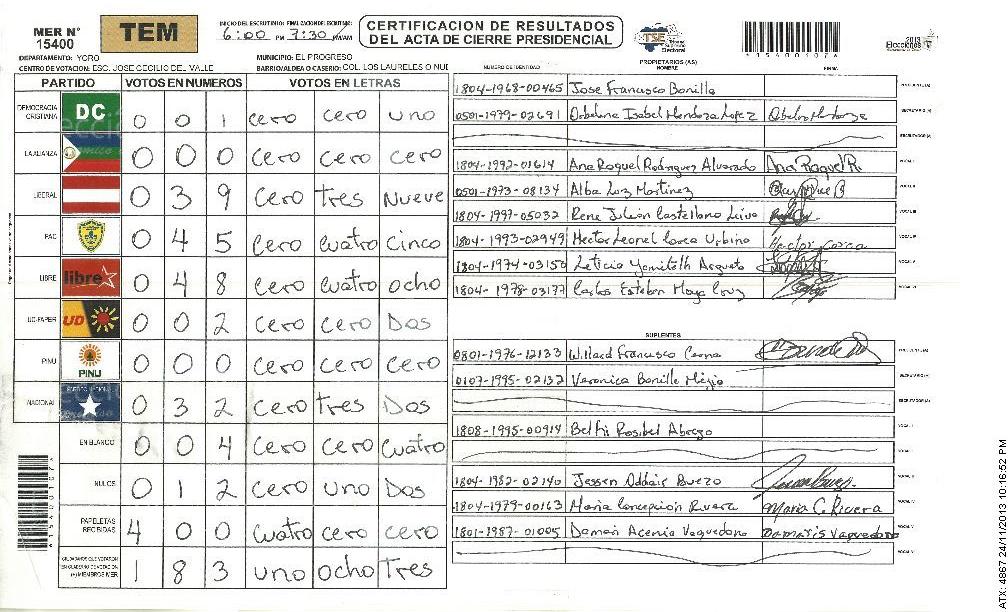 MER N° 15400
TEM
INICIO DEL ESCRUTINIO: 6:00 PM FINALIZACION DEL ESCRUTINIO: 7:30 PM/AM
CERTIFICACION DE RESULTADOS
DEL ACTA DE CIERRE PRESIDENCIAL
TSE Tribunal Supremo Electoral
2013 Elecciones
A15400107A
DEPARTAMENTO: YORO MUNICIPIO: EL PROGRESO
CENTRO DE VOTACION: ESC. JOSE CECILIO DEL VALLE BARRIO/ALDEA O CASERIO: COL. LOS LAURELES O NUE
PARTIDO VOTOS EN NUMEROS VOTOS EN LETRAS
DEMOCRACIA CRISTIANA DC 0 0 1 cero cero uno
LA ALIANZA 0 0 0 cero cero cero
LIBERAL 0 3 9 cero Tres Nueve
PAC 0 4 5 cero cuatro cinco
LIBRE libre 0 4 8 cero cuatro ocho
UD-FAPER UD 0 0 2 cero cero Dos
PINU PINU 0 0 0 cero cero cero
NACIONAL 0 3 2 cero Tres Dos
EN BLANCO 0 0 4 cero cero cuatro
NULOS 0 1 2 cero uno Dos
PAPELETAS RECIBIDAS 4 0 0 cuatro cero cero
1 8 3 uno ocho Tres
PROPIETARIOS (AS)
NUMERO DE IDENTIDAD NOMBRE FIRMA
1804-1968-00465 Jose Francisco Bonilla PRESIDENTE (A)
0501-1979-02691 Isabel Mendoza Lopez SECRETARIO (A)
ESCRUTADOR (A)
1804-1992-01614 Ana Raquel Rodriguez Alvarado Ana Raquel R. VOCAL I
0501-1973-08134 Alba Luz Martinez VOCAL II
1804-1997-05032 Rene Julian Castellano VOCAL III
1804-1993-02949 Hector Leonel Lorca Urbina VOCAL IV
1804-1974-03150 Leticia Yamileth Argueta VOCAL V
1804-1978-03177 Carlos Esteban Moya Cruz VOCAL VI
SUPLENTES
0801-1976-12133 Willard Francisco Cerna PRESIDENTE (A)
0107-1995-02132 Veronica Bonilla Mejia SECRETARIO (A)
ESCRUTADOR (A)
1808-1995-00914 Rosibel Abrego VOCAL I
VOCAL II
1804-1982-02140 Jessen Oddair VOCAL III
1804-1979-00163 Maria Concepcion Rivera Maria C. Rivera VOCAL IV
1801-1987-01005 Damari Acenia Vaquedano Damaris Vaquedano VOCAL V
VOCAL VI
A15400107A
ATX: 4867 24/11/2013 10:16:52 PM